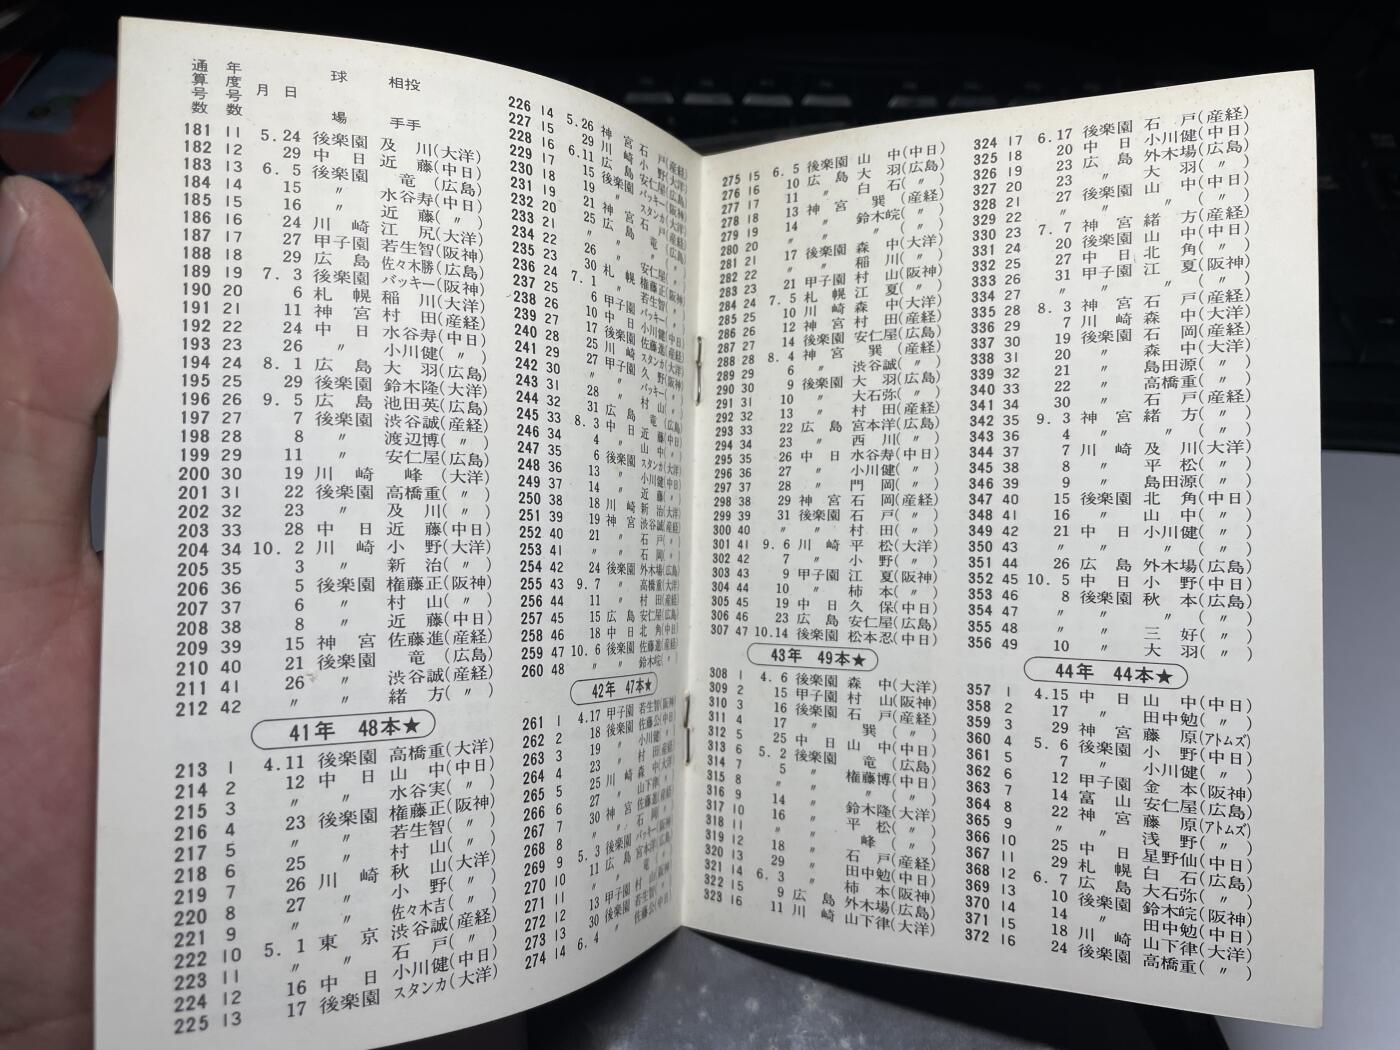 通算号数 年度号数 月 日 球場 相手投手
181 11 5.24 後楽園 及川(大洋)
182 12 29 中日 近藤(中日)
183 13 6.5 後楽園 竜(広島)
184 14 15 〃 水谷寿(中日)
185 15 16 〃 近藤(〃)
186 16 24 川崎 江尻(大洋)
187 17 27 甲子園 若生智(阪神)
188 18 29 広島 佐々木勝(広島)
189 19 7.3 後楽園 バッキー(阪神)
190 20 6 札幌 稲川(大洋)
191 21 11 神宮 村田(産経)
192 22 24 中日 水谷寿(中日)
193 23 26 〃 小川健(〃)
194 24 8.1 広島 大羽(広島)
195 25 29 後楽園 鈴木隆(大洋)
196 26 9.5 広島 池田英(広島)
197 27 7 後楽園 渋谷誠(産経)
198 28 8 〃 渡辺博(〃)
199 29 11 〃 安仁屋(広島)
200 30 19 川崎 峰(大洋)
201 31 22 後楽園 高橋重(〃)
202 32 23 〃 及川(〃)
203 33 28 中日 近藤(中日)
204 34 10.2 川崎 小野(大洋)
205 35 3 〃 新治(〃)
206 36 5 後楽園 権藤正(阪神)
207 37 6 〃 村山(〃)
208 38 8 〃 近藤(中日)
209 39 15 神宮 佐藤進(産経)
210 40 21 後楽園 竜(広島)
211 41 26 〃 渋谷誠(産経)
212 42 〃 〃 緒方(〃)
41年 48本★
213 1 4.11 後楽園 高橋重(大洋)
214 2 12 中日 山中(中日)
215 3 〃 〃 水谷実(〃)
216 4 23 後楽園 権藤正(阪神)
217 5 〃 〃 若生智(〃)
218 6 25 〃 村山(〃)
219 7 26 川崎 秋山(大洋)
220 8 27 〃 小野(〃)
221 9 〃 〃 佐々木吉(〃)
222 10 5.1 東京 渋谷誠(産経)
223 11 〃 〃 石戸(〃)
224 12 16 中日 小川健(中日)
225 13 17 後楽園 スタンカ(大洋)
226 14 5.26 神宮 石戸(産経)
227 15 29 川崎 小野(大洋)
228 16 6.11 広島 安仁屋(広島)
229 17 15 後楽園 バッキー(阪神)
230 18 19 〃 スタンカ(大洋)
231 19 21 神宮 石戸(産経)
232 20 25 広島 竜(広島)
233 21 〃 〃 〃(〃)
234 22 26 〃 安仁屋(〃)
235 23 30 札幌 権藤正(阪神)
236 24 7.1 〃 若生智(〃)
237 25 6 甲子園 バッキー(〃)
238 26 10 中日 小川健(中日)
239 27 17 後楽園 佐藤進(産経)
240 28 25 川崎 スタンカ(大洋)
241 29 27 甲子園 久野(阪神)
242 30 〃 〃 バッキー(〃)
243 31 28 〃 村山(〃)
244 32 31 広島 竜(広島)
245 33 8.3 中日 近藤(中日)
246 34 4 〃 山中(〃)
247 35 6 後楽園 スタンカ(大洋)
248 36 13 〃 小川健(中日)
249 37 14 〃 近藤(〃)
250 38 18 川崎 新治(大洋)
251 39 19 神宮 渋谷誠(産経)
252 40 21 〃 石戸(〃)
253 41 〃 〃 石岡(〃)
254 42 24 後楽園 外木場(広島)
255 43 9.7 〃 高橋重(大洋)
256 44 11 〃 村田(産経)
257 45 15 広島 安仁屋(広島)
258 46 18 中日 北角(中日)
259 47 10.6 後楽園 佐藤進(産経)
260 48 〃 〃 鈴木皖(〃)
42年 47本★
261 1 4.17 甲子園 若生智(阪神)
262 2 18 後楽園 佐藤公(中日)
263 3 19 〃 小川健(〃)
264 4 23 〃 村田(産経)
265 5 25 川崎 森中(大洋)
266 6 27 〃 山下律(〃)
267 7 30 神宮 佐藤進(産経)
268 8 〃 〃 石岡(〃)
269 9 5.3 後楽園 バッキー(阪神)
270 10 11 広島 宮本洋(広島)
271 11 〃 〃 竜(〃)
272 12 13 甲子園 村山(阪神)
273 13 30 後楽園 若生智(阪神)
274 14 6.4 〃 佐藤公(中日)
275 15 6.5 後楽園 山中(中日)
276 16 10 広島 大羽(広島)
277 17 11 〃 白石(〃)
278 18 13 神宮 巽(産経)
279 19 14 〃 鈴木皖(〃)
280 20 〃 〃 〃(〃)
281 21 17 後楽園 森中(大洋)
282 22 〃 〃 稲川(〃)
283 23 21 甲子園 村山(阪神)
284 24 7.5 札幌 江夏(〃)
285 25 10 川崎 森中(大洋)
286 26 12 神宮 村田(産経)
287 27 14 後楽園 安仁屋(広島)
288 28 8.4 神宮 巽(産経)
289 29 6 〃 渋谷誠(〃)
290 30 9 後楽園 大羽(広島)
291 31 10 〃 大石弥(〃)
292 32 13 〃 村田(産経)
293 33 22 広島 宮本洋(広島)
294 34 23 〃 西川(〃)
295 35 26 中日 水谷寿(中日)
296 36 27 〃 小川健(〃)
297 37 28 〃 門岡(〃)
298 38 29 神宮 石岡(産経)
299 39 31 後楽園 石戸(〃)
300 40 〃 〃 村田(〃)
301 41 9.6 川崎 平松(大洋)
302 42 7 〃 小野(〃)
303 43 9 甲子園 江夏(阪神)
304 44 10 〃 柿本(〃)
305 45 19 中日 久保(中日)
306 46 23 広島 安仁屋(広島)
307 47 10.14 後楽園 松本忍(中日)
43年 49本★
308 1 4.6 後楽園 森中(大洋)
309 2 15 甲子園 村山(阪神)
310 3 16 後楽園 石戸(産経)
311 4 17 〃 巽(〃)
312 5 25 中日 山中(中日)
313 6 5.2 後楽園 竜(広島)
314 7 5 〃 権藤博(中日)
315 8 〃 〃 〃(〃)
316 9 14 〃 鈴木隆(大洋)
317 10 16 〃 平松(〃)
318 11 〃 〃 峰(〃)
319 12 18 〃 石戸(産経)
320 13 29 〃 田中勉(中日)
321 14 6.3 〃 柿本(阪神)
322 15 9 広島 外木場(広島)
323 16 11 川崎 山下律(大洋)
324 17 6.17 後楽園 石戸(産経)
325 18 20 中日 小川健(中日)
326 19 23 広島 外木場(広島)
327 20 23 〃 大羽(〃)
328 21 27 後楽園 山中(中日)
329 22 〃 〃 〃(〃)
330 23 7.7 神宮 緒方(産経)
331 24 20 後楽園 山中(中日)
332 25 27 中日 北角(〃)
333 26 31 甲子園 江夏(阪神)
334 27 〃 〃 〃(〃)
335 28 8.3 神宮 石戸(産経)
336 29 7 川崎 森中(大洋)
337 30 19 後楽園 石岡(産経)
338 31 20 〃 森中(大洋)
339 32 21 〃 島田源(〃)
340 33 22 〃 高橋重(〃)
341 34 30 〃 石戸(産経)
342 35 9.3 神宮 緒方(〃)
343 36 4 〃 〃(〃)
344 37 7 川崎 及川(大洋)
345 38 8 〃 平松(〃)
346 39 9 〃 島田源(〃)
347 40 15 後楽園 北角(中日)
348 41 16 〃 山中(〃)
349 42 21 中日 小川健(〃)
350 43 〃 〃 〃(〃)
351 44 26 広島 外木場(広島)
352 45 10.5 中日 小野(中日)
353 46 8 後楽園 秋本(広島)
354 47 〃 〃 〃(〃)
355 48 〃 〃 三好(〃)
356 49 10 〃 大羽(〃)
44年 44本★
357 1 4.15 中日 山中(中日)
358 2 17 〃 田中勉(〃)
359 3 29 神宮 藤原(アトムズ)
360 4 5.6 後楽園 小野(中日)
361 5 7 〃 小川健(〃)
362 6 12 甲子園 金本(阪神)
363 7 14 富山 安仁屋(広島)
364 8 22 神宮 藤原(アトムズ)
365 9 〃 〃 浅野(〃)
366 10 25 中日 星野仙(中日)
367 11 29 札幌 白石(広島)
368 12 6.7 広島 大石弥(〃)
369 13 10 後楽園 鈴木皖(阪神)
370 14 14 〃 田中勉(中日)
371 15 18 川崎 山下律(大洋)
372 16 24 後楽園 高橋重(〃)